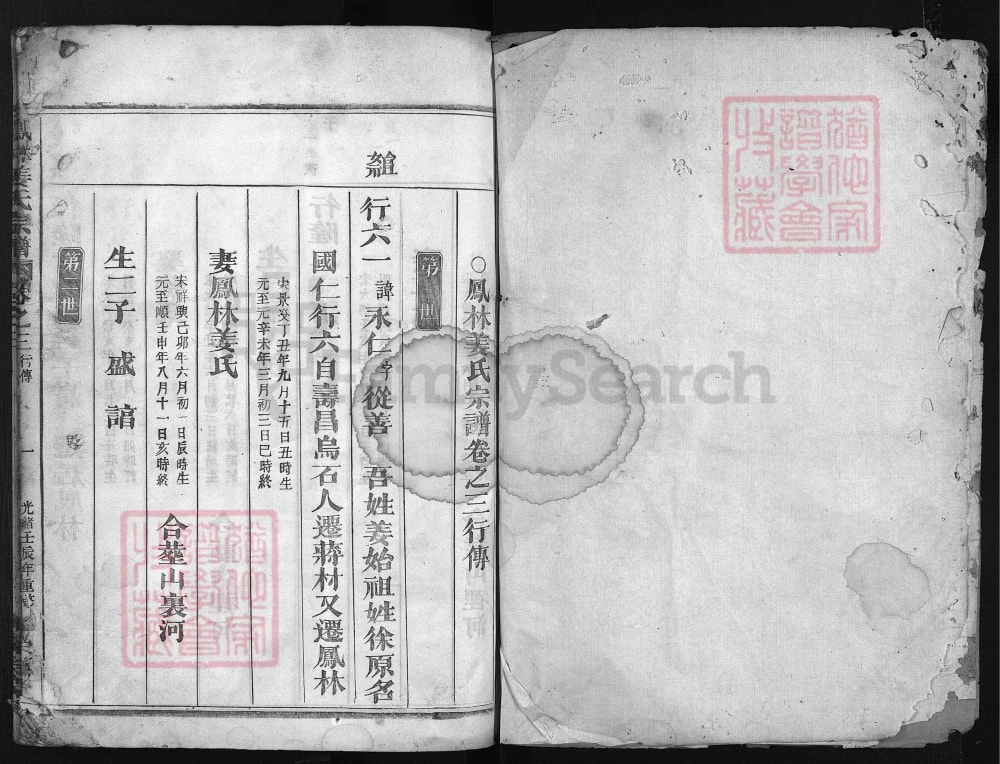 鳳林姜氏宗譜卷之三行傳
第一世
行六一 諱永仁字從善 吾姓姜始祖姓徐原名
國仁行六自壽昌烏石人遷蔣村又遷鳳林
宋景炎丁丑年九月十五日丑時生
元至元辛未年三月初三日巳時終
妻鳳林姜氏
宋祥興己卯年六月初一日辰時生
元至順壬申年八月十一日亥時終
合塟山裏河
生二子 盛 諳
第二世
鳳林姜氏宗譜
卷之三
行傳
一
光緒壬辰年重
FamilySearch